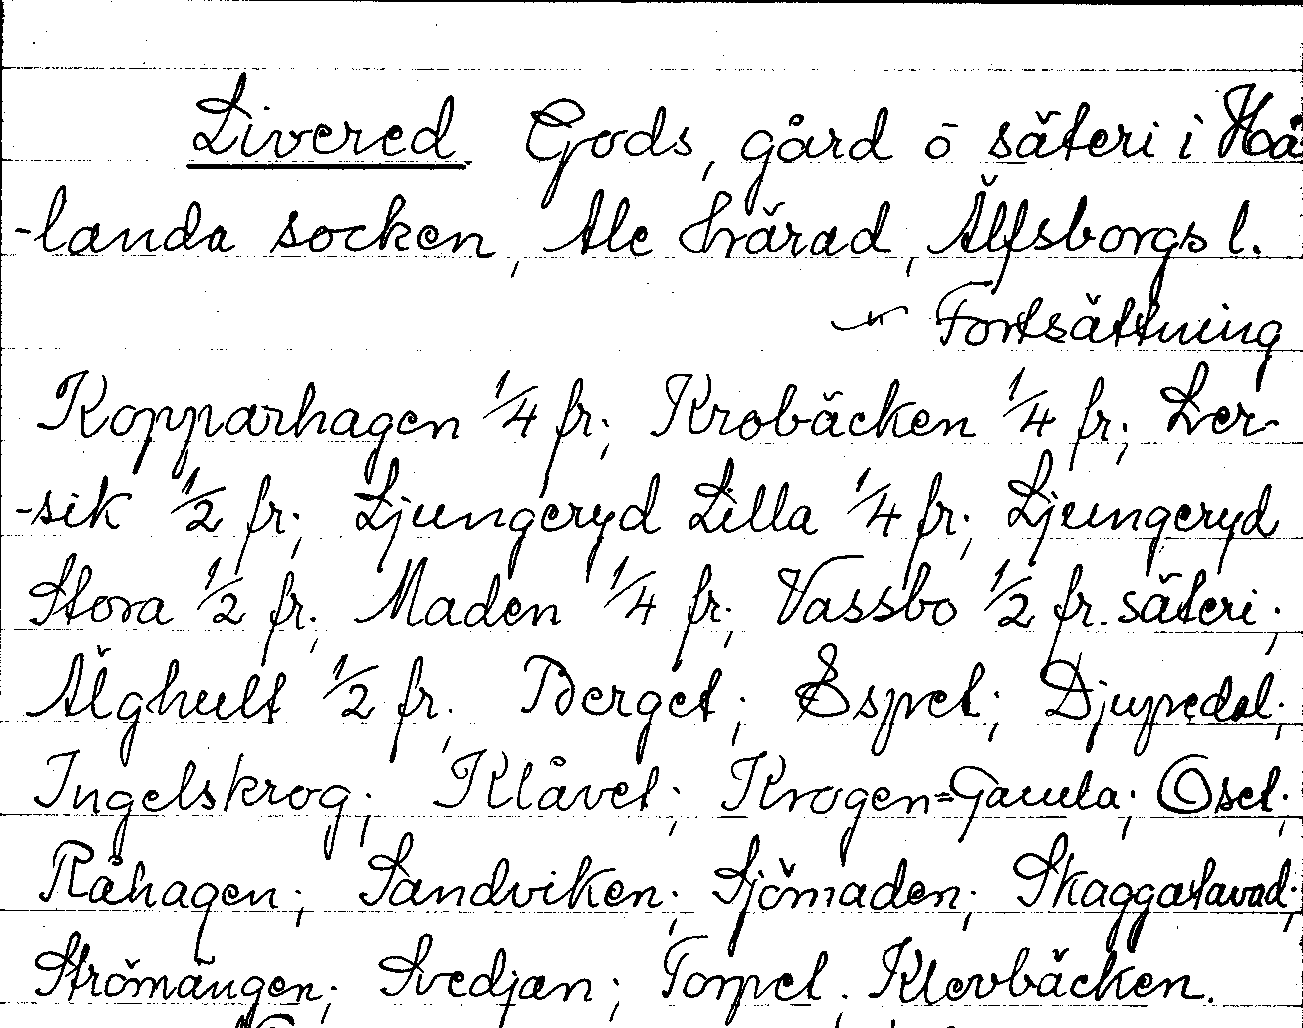 Livered Gods, gård ō säteri i Hå
-landa socken, Ale härad, Älfsborgs l.
Fortsättning
Kopparhagen 1/4 fr; Krobäcken 1/4 fr; Ler-
-sik 1/2 fr; Ljungeryd Lilla 1/4 fr; Ljungeryd
Stora 1/2 fr; Maden 1/4 fr; Vassbo 1/2 fr. säteri;
Älghult 1/2 fr. Berget; Espet; Djupedal;
Ingelskrog; Klåvet; Krogen=Gamla; Oset;
Råhagen; Sandviken; Sjömaden; Skaggatavad;
Strömängen; Svedjan; Torpet. Klevbäcken.